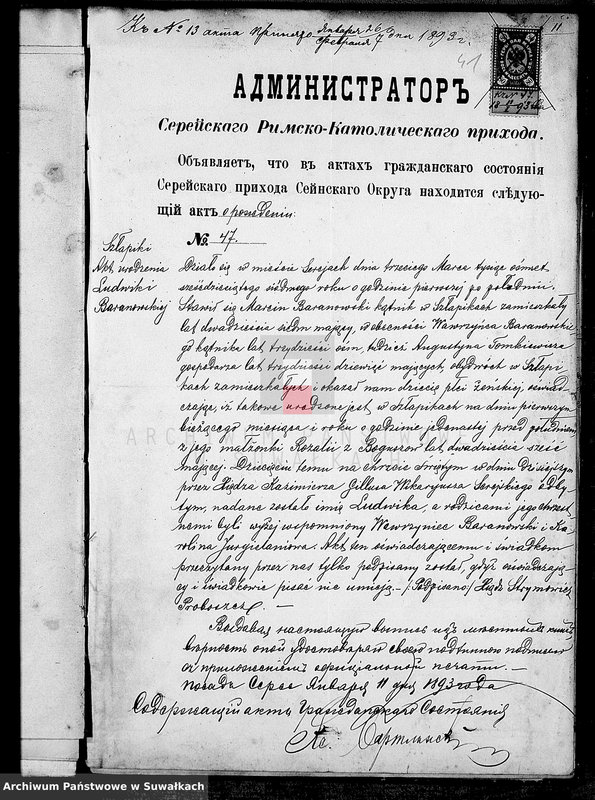 Къ № 13 акта принято Января 26 Февраля 7 дня 1893 г.
11
41
АДМИНИСТРАТОРЪ
Серейскаго Римско-Католическаго прихода.
Объявляетъ, что въ актахъ гражданскаго состоянія
Серейскаго прихода Сейнскаго Округа находится слѣдую-
щій актъ о рожденіи:
№ 47.
Szłapiki
Akt urodzenia
Ludwiki
Baranowskiej
Działo się w mieście Serejach dnia trzeciego Marca tysiąc ośmset
sześćdziesiątego siódmego roku o godzinie pierwszej po południu.
Stawił się Marcin Baranowski kątnik w Szłapikach zamieszkały
lat dwadzieścia siedm mający, w obecności Wawrzyńca Baranowskie-
go kątnika lat trzydzieści ośm, tudzież Augustyna Tomkiewicza
gospodarza lat trzydzieści dziewięć mających, obydwóch w Szłapi-
kach zamieszkałych i okazał nam dziecię płci żeńskiej, oświad-
czając, iż takowe urodzone jest w Szłapikach na dniu pierwszym
bieżącego miesiąca i roku o godzinie jedenastej przed południem
z jego małżonki Rozalii z Boguszow lat dwadzieścia sześć
mającej. Dziecięciu temu na chrzcie świętym w dniu dzisiejszym
przez Księdza Kazimierza Gellusa Wikaryusza Serejskiego odby-
tym, nadane zostało imię Ludwika, a rodzicami jego chrzest-
nemi byli wyżej wspomniony Wawrzyniec Baranowski i Ka-
rolina Jurgielaniowa. Akt ten oświadczającemu i świadkom
przeczytany przez nas tylko podpisany został, gdyż oświadczają-
cy i świadkowie pisać nie umieją. — /:Podpisano:/ Ksiądz Strymowicz
Proboszcz. —
Выдавая настоящую выпись изъ метрическихъ книгъ
вѣрность оной удостовѣряю своею подписью
съ приложеніемъ оффиціальной печати. —
Посадъ Сереѣ Января 11 дня 1893 года
Содержащій акты Гражданскаго Состоянія
Кс.
ARCHIWUM PAŃSTWOWE
SUWAŁKACH
Archiwum Państwowe w Suwałkach